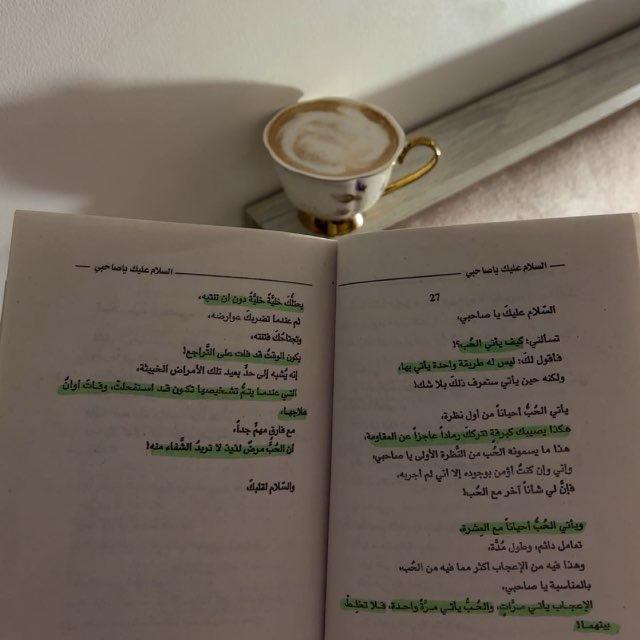 السلام عليك ياصاحبي
27
السّلام عليكَ يا صاحبي،
تسألني: كيف يأتي الحُبّ؟!
فأقول لكَ: ليس له طريقة واحدة يأتي بها،
ولكنه حين يأتي ستعرف ذلكَ بلا شك!
يأتي الحُبُّ أحياناً من أول نظرة،
هكذا يصيبك كبرقةٍ تتركك رماداً عاجزاً عن المقاومة،
هذا ما يسمونه الحُب من النَّظرة الأولى يا صاحبي،
وإني وإن كنتُ أؤمن بوجوده إلا أني لم أجربه،
فإنَّ لي شأناً آخر مع الحُب!
ويأتي الحُبُّ أحياناً مع العِشرة،
تعامل دائم، وطول مُدَّة،
وهذا فيه من الإعجاب أكثر مما فيه من الحُب،
بالمناسبة يا صاحبي،
الإعجاب يأتي مرَّاتٍ، والحُبُّ يأتي مرَّةً واحدة، فلا تخلِطْ
بينهما!
السلام عليك ياصاحبي
يحتلّكَ خليَّةً خليَّةً دون أن تنتبه،
ثم عندما تضربكَ عوارضه،
وتجتاحُكَ فتنته،
يكون الوقتُ قد فات على التَّراجع!
إنه يُشبه إلى حدٍّ بعيد تلك الأمراض الخبيثة،
التي عندما يتمُّ تشخيصها تكون قد استفحلتْ، وفـات أوانُ
علاجها،
مع فارق مهمٍّ جداً،
أن الحُبَّ مرضٌ لذيذ لا تريدُ الشِّفاء منه!
والسّلام لقلبكَ